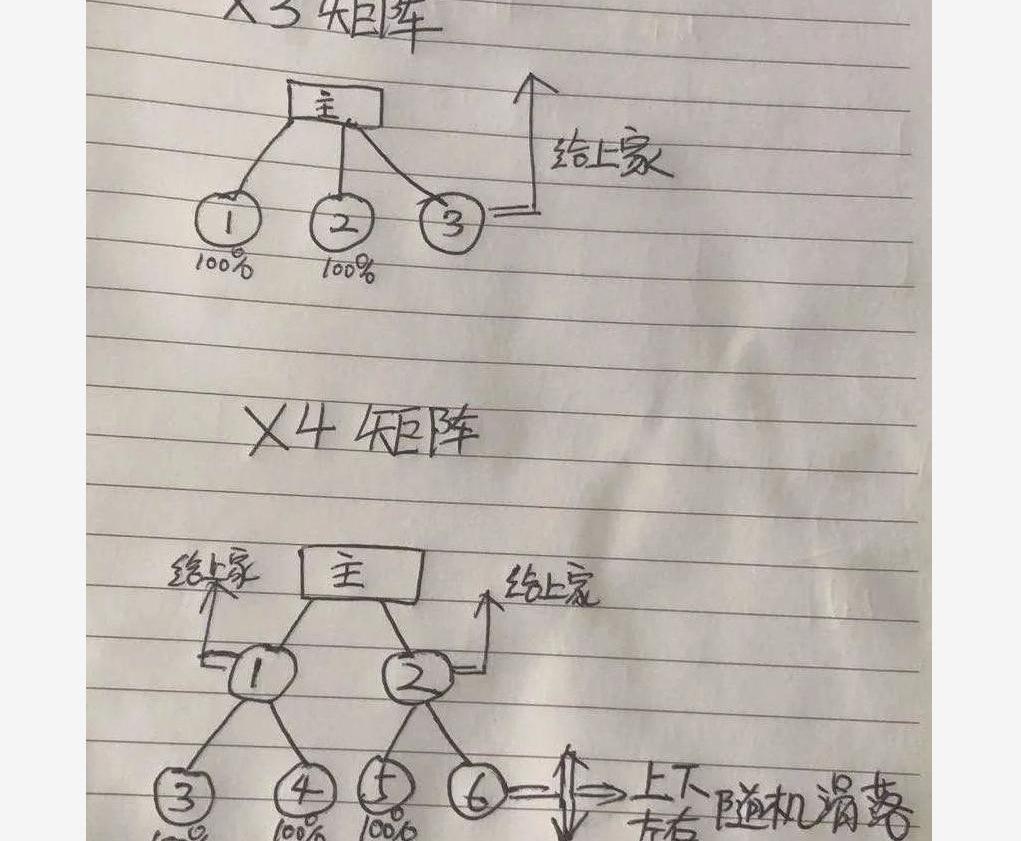 X3矩阵
主
给上家
1 2 3
100% 100%
X4 矩阵
给上家 主 给上家
1 2
3 4 5 6 上下 随机滑落
左右
100% 100% 100%